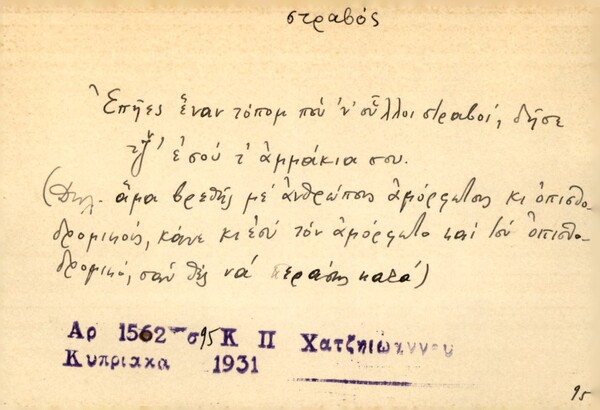 στραβός
Ἐπῆες ἕναν τόπομ πού 'ν' οὗλλοι στραβοί, δῆσε
τζ̌' ἐσού τ' ἀμμάκια σου.
(Δηλ. ἅμα βρεθῇς μέ ἀνθρώπους ἀμόρφωτους κι ὀπισθο-
δρομικούς, κάνε κι ἐσύ τόν ἀμόρφωτο καί τόν ὀπισθο-
δρομικό, σάν θές νά περάσῃς καλά)
Αρ 1562 σ 95 Κ Π Χατζηιωαννου
Κυπριακα 1931
95